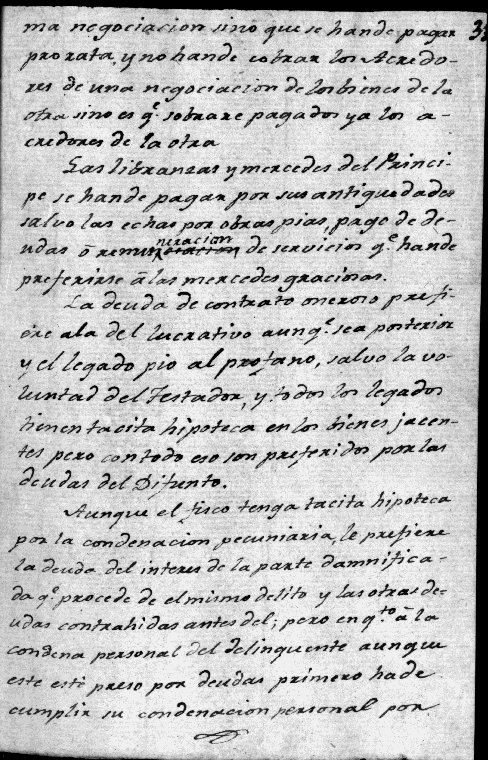 ma negociacion sino que se hande pagar
prorrata, y no hande cobrar los Acredo-
res de una negociacion de los bienes de la
otra sino es q.e sobrare pagados ya los a-
creedores de la otra
Las libranzas y mercedes del Princi-
pe se hande pagar por sus antiguedades
salvo las echas por obras pias, pago de de-
udas ō remuneracion de servicios q.e hande
preferirse ā las mercedes graciosas.
La deuda de contrato oneroso prefi-
ere ala del lucrativo aunq.e sea posterior
y el legado pio al profano, salvo la vo-
luntad del Testador, y todos los legados
tienen tacita hipoteca en los bienes jacen-
tes pero con todo eso son preferidos por las
deudas del Difunto.
Aunque el fisco tenga tacita hipoteca
por la condenacion pecuniaria, le prefiere
la deuda del interes de la parte damnifica-
da q.e procede de el mismo delito y las otras de-
udas contrahidas antes del; pero en q.to ā la
condena personal del delinquente aunque
este esté preso por deudas primero hade
cumplir su condenacion personal por